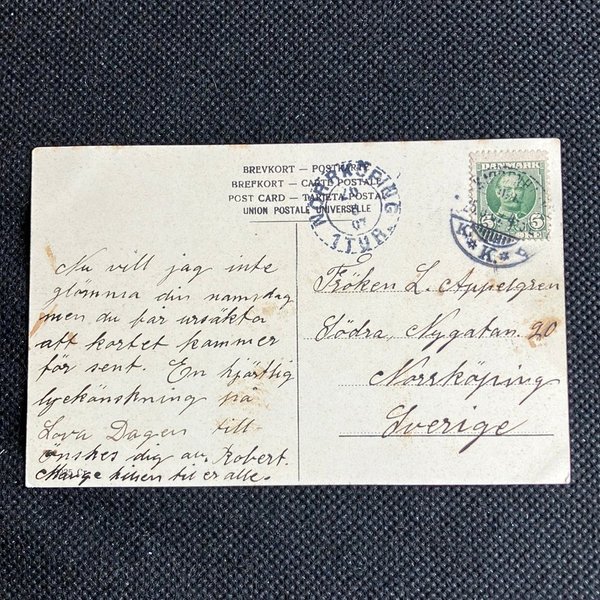 BREVKORT — POSTKARTE
BREFKORT — CARTE POSTALE
POST CARD — TARJETA POSTAL
UNION POSTALE UNIVERSELLE
NORRKÖPING
07
1 TUR
DANMARK
5
K. K.
Nu vill jag inte
glömma din namsdag
men du får ursäkta
att kortet kammer
för sent. En hjärtlig
lyckönskning på
Lova Dagen till
önskes dig av, Robert.
Mange hilsen til er alle.
Fröken L. Appelgren
Södra, Nygatan. 20
Norrköping
Sverige